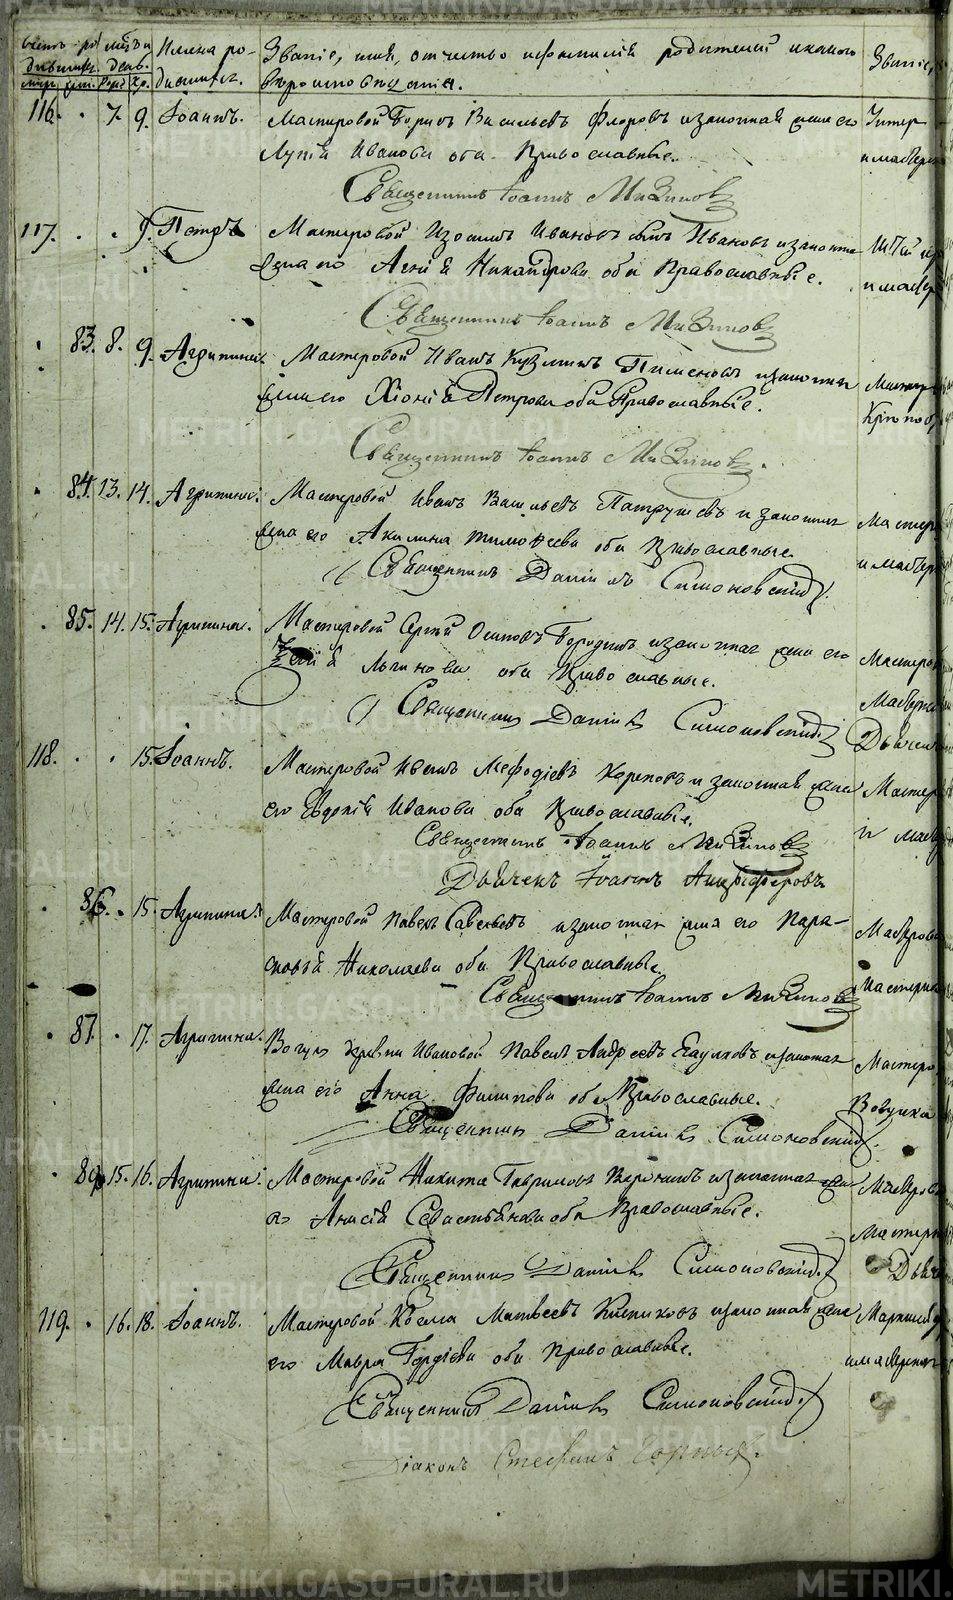 Счетъ ро мѣсъ и Имена ро- Званіе, имя, отчество и фамилія родителей и какого Званіе,
дившихс. день. дившихс. вѣроисповѣданія.
муж. жен. Рож. Кр.
116. 7. 9. Іоаннъ. Мастеровой Борисъ Васильевъ Флоровъ и законная жена его Унтер
Лукія Иванова оба Православные. и мастерск
Священникъ Іоаннъ Мизиновъ
117. 9. Петръ Мастеровой Изосимъ Ивановъ сынъ Ивановъ и законна
жена его Агнія Никандрова оба Православные. и мастер
Священникъ Іоаннъ Мизиновъ
83. 8. 9. Агрипина. Мастеровой Иванъ Кузминъ Пименовъ и законная Мастер
жена его Хіонія Петрова оба Православные.
Священникъ Іоаннъ Мизиновъ.
84. 13. 14. Агрипина. Мастеровой Иванъ Васильевъ Патрушевъ и законная Мастер
жена его Акилина Тимофеева оба Православные. и мастер
Священникъ Даніилъ Симоновскій.
85. 14. 15. Агрипина. Мастеровой Сергій Осиповъ Бородинъ и законная жена его Мастеров
Логинова оба Православные.
Священникъ Даніилъ Симоновскій. Дьячек
118. 15. Іоаннъ. Мастеровой Иванъ Мефодіевъ Кореповъ и законная жена Мастер
его Евдокія Иванова оба Православные. и мастер
Священникъ Іоаннъ Мизиновъ
Дьячекъ Іоаннъ Анцыферовъ.
86. 15. Агрипина. Мастеровой Павелъ Савельевъ и законная жена его Пара-
сковья Николаева оба Православные.
Священникъ Іоаннъ Мизиновъ Мастерск
87. 17. Агрипина. Вогулъ деревни Ивановой Павелъ Андреевъ и законная Мастеро
жена его Анна Филипова оба Православные.
Священникъ Даніилъ Симоновскій.
89. 15. 16. Агрипина. Мастеровой Никита Гавриловъ Воронинъ и законная жена Мастеров
его Анисія Севастьянова оба Православные. Мастерск
Священникъ Даніилъ Симоновскій. Дьяч
119. 16. 18. Іоаннъ. Мастеровой Козма Матвеевъ и законная жена
его Мавра Гордіева оба Православные. и мастерск
Священникъ Даніилъ Симоновскій.
Діаконъ Стефанъ Горныхъ.
METRIKI.GASO-URAL.RU
METRIKI.